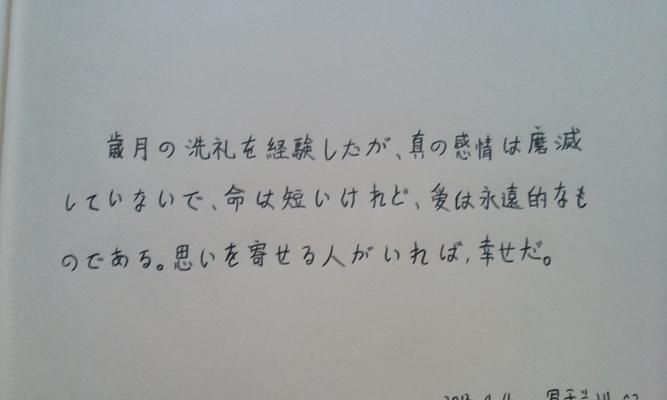 歳月の洗礼を経験したが、真の感情は磨滅
していないで、命は短いけれど、愛は永遠的なも
のである。思いを寄せる人がいれば，幸せだ。